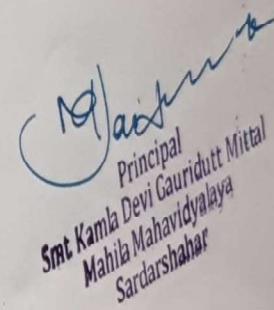 Principal
Smt. Kamla Devi Gauridutt Mittal
Mahila Mahavidyalaya
Sardarshahar